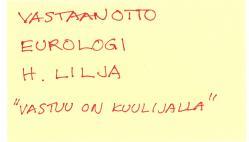 VASTAANOTTO
EUROLOGI
H. LILJA
"VASTUU ON KUULIJALLA"